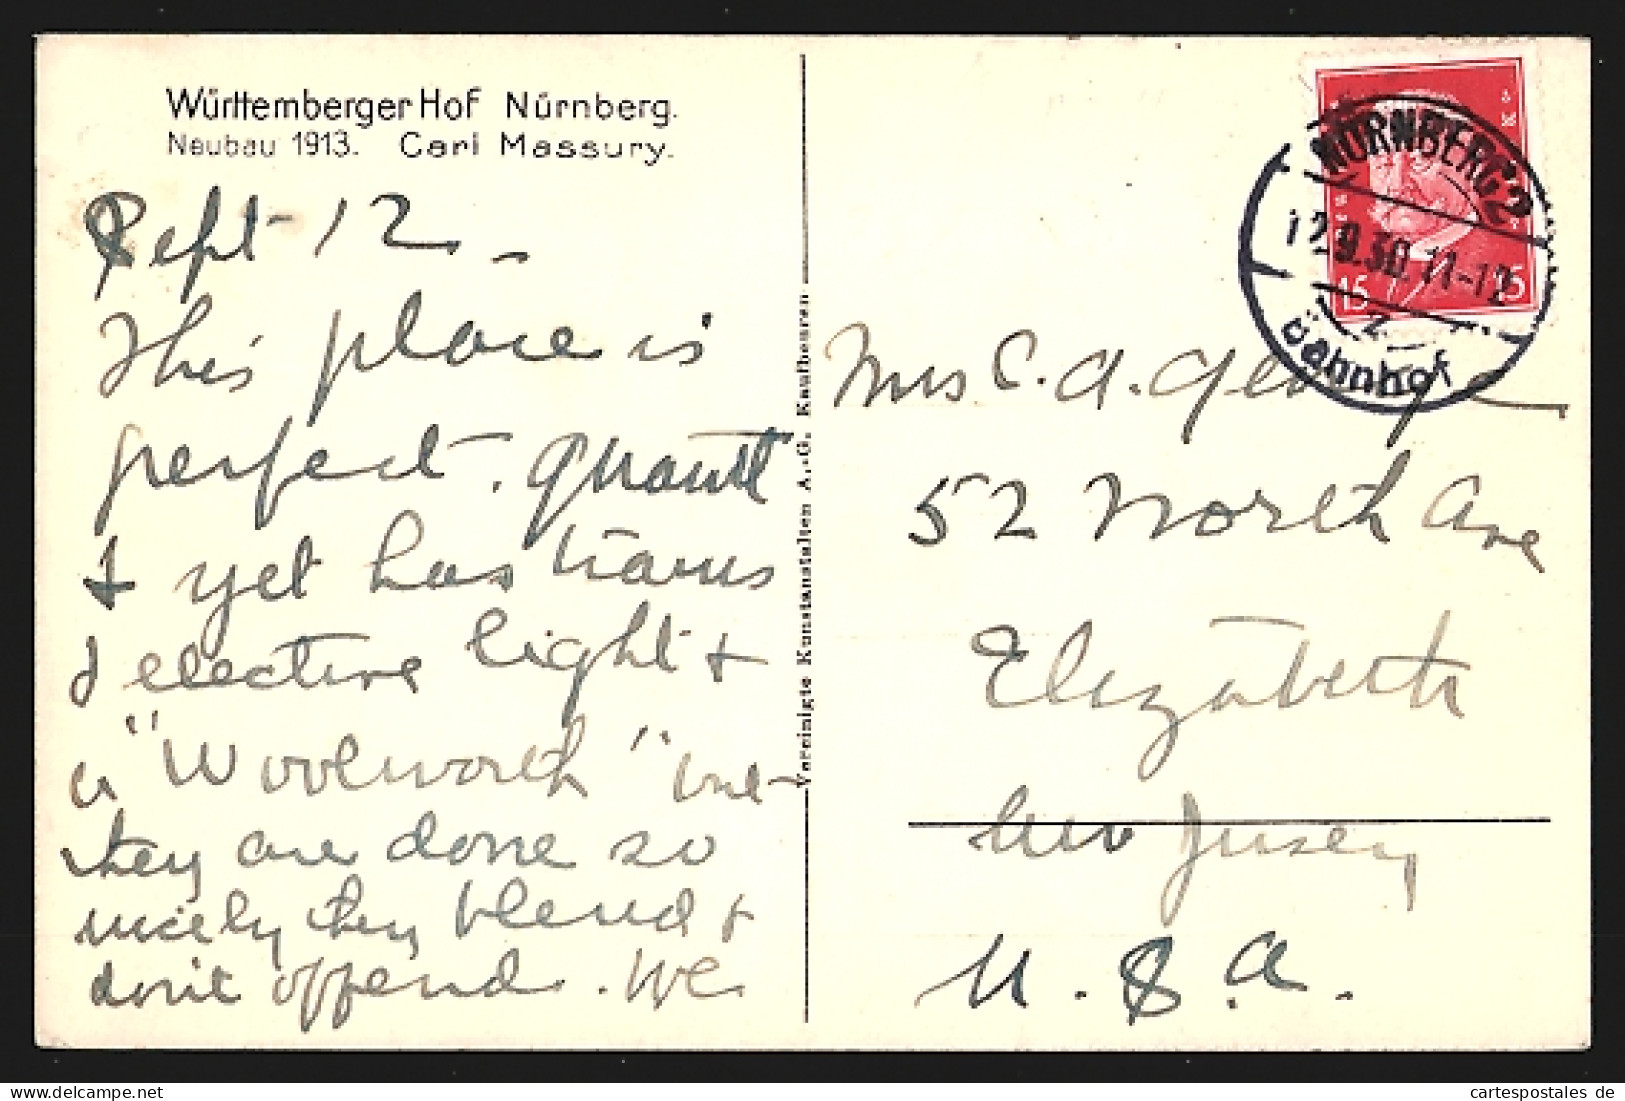 Württemberger Hof Nürnberg.
Neubau 1913. Carl Massury.
Sept 12 -
This place is
perfect. Quaint
& yet has trams
& electric light &
a "Woolworth" but
they are done so
nicely they blend &
don't offend. We
Vereinigte Kunstanstalten A.-G. Kaufbeuren
NÜRNBERG 2
12.9.30. 11-12
Z
Bahnhof
15 15
Mrs C. A. George
52 North Ave
Elizabeth
New Jersey
U. S. A.
cartespostales de